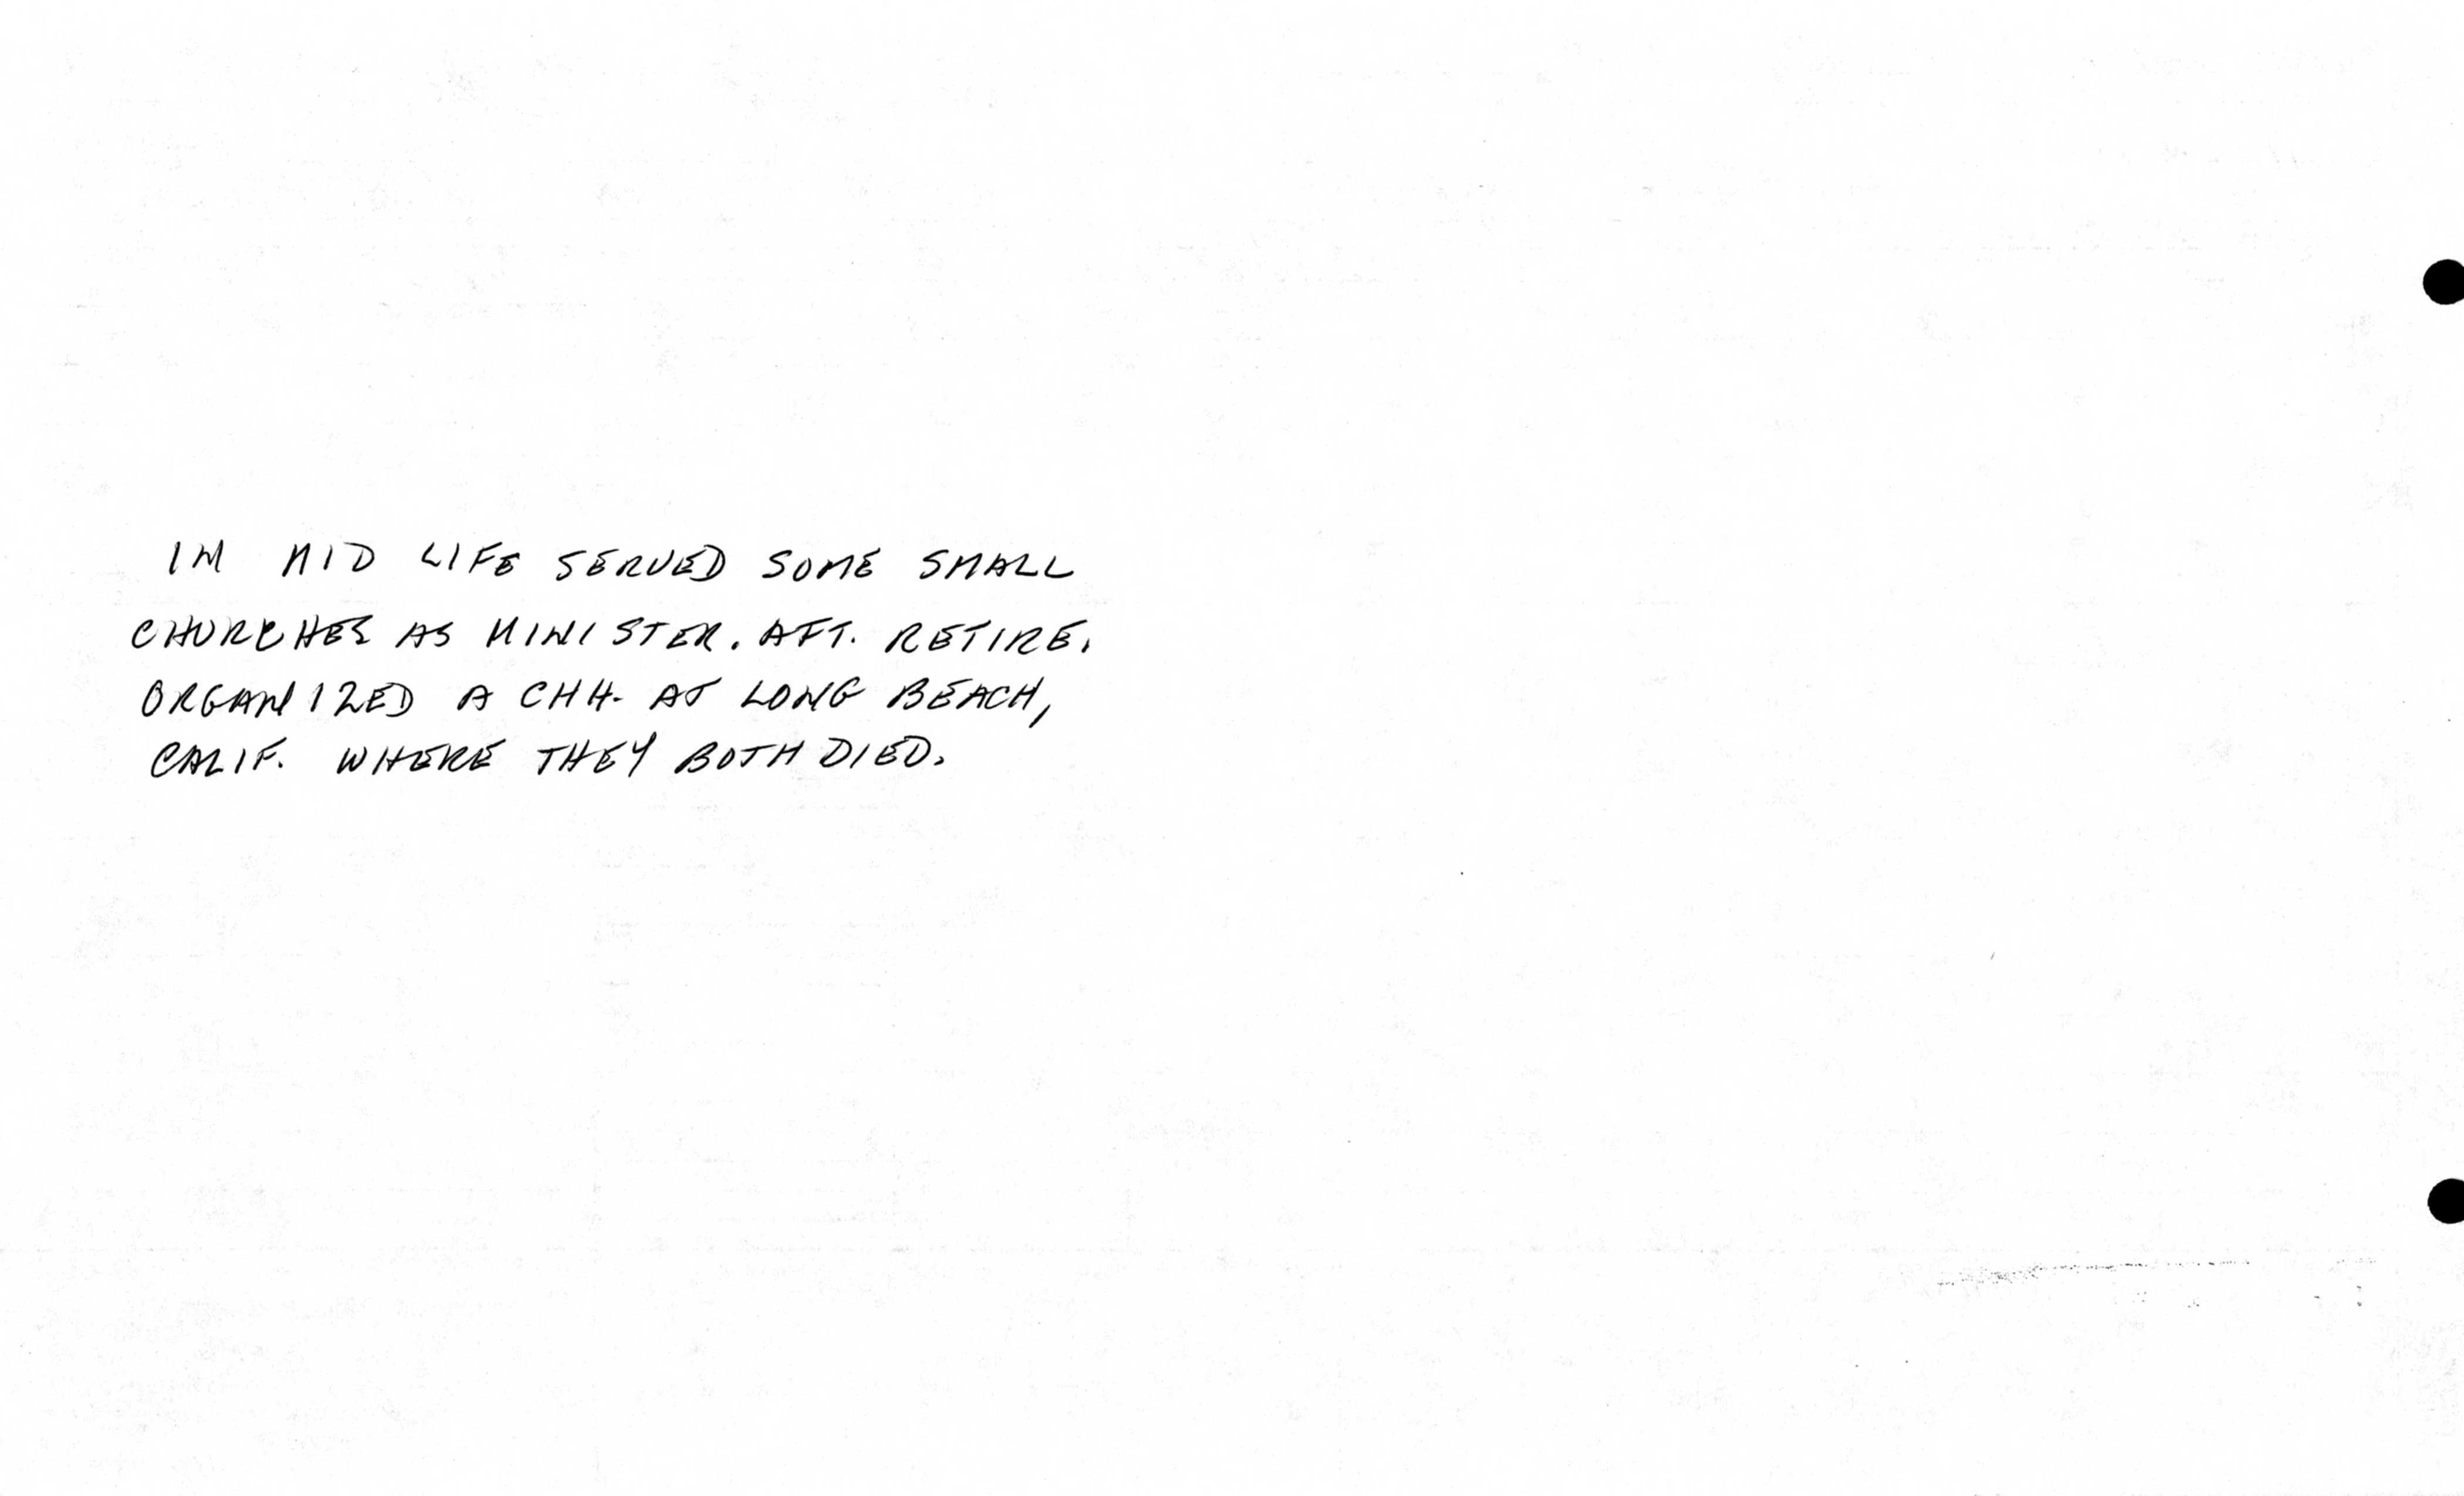 IN MID LIFE SERVED SOME SMALL
CHURCHES AS MINISTER. AFT. RETIRE.
ORGANIZED A CHH. AT LONG BEACH,
CALIF. WHERE THEY BOTH DIED.